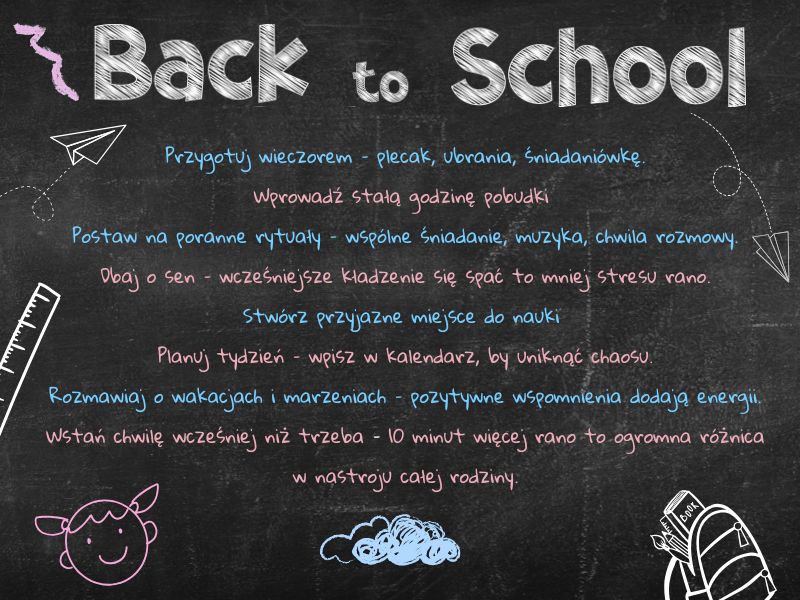 Back to School
Przygotuj wieczorem - plecak, ubrania, śniadaniówkę.
Wprowadź stałą godzinę pobudki
Postaw na poranne rytuały - wspólne śniadanie, muzyka, chwila rozmowy.
Dbaj o sen - wcześniejsze kładzenie się spać to mniej stresu rano.
Stwórz przyjazne miejsce do nauki
Planuj tydzień - wpisz w kalendarz, by uniknąć chaosu.
Rozmawiaj o wakacjach i marzeniach - pozytywne wspomnienia dodają energii.
Wstań chwilę wcześniej niż trzeba - 10 minut więcej rano to ogromna różnica
w nastroju całej rodziny.
BOOK